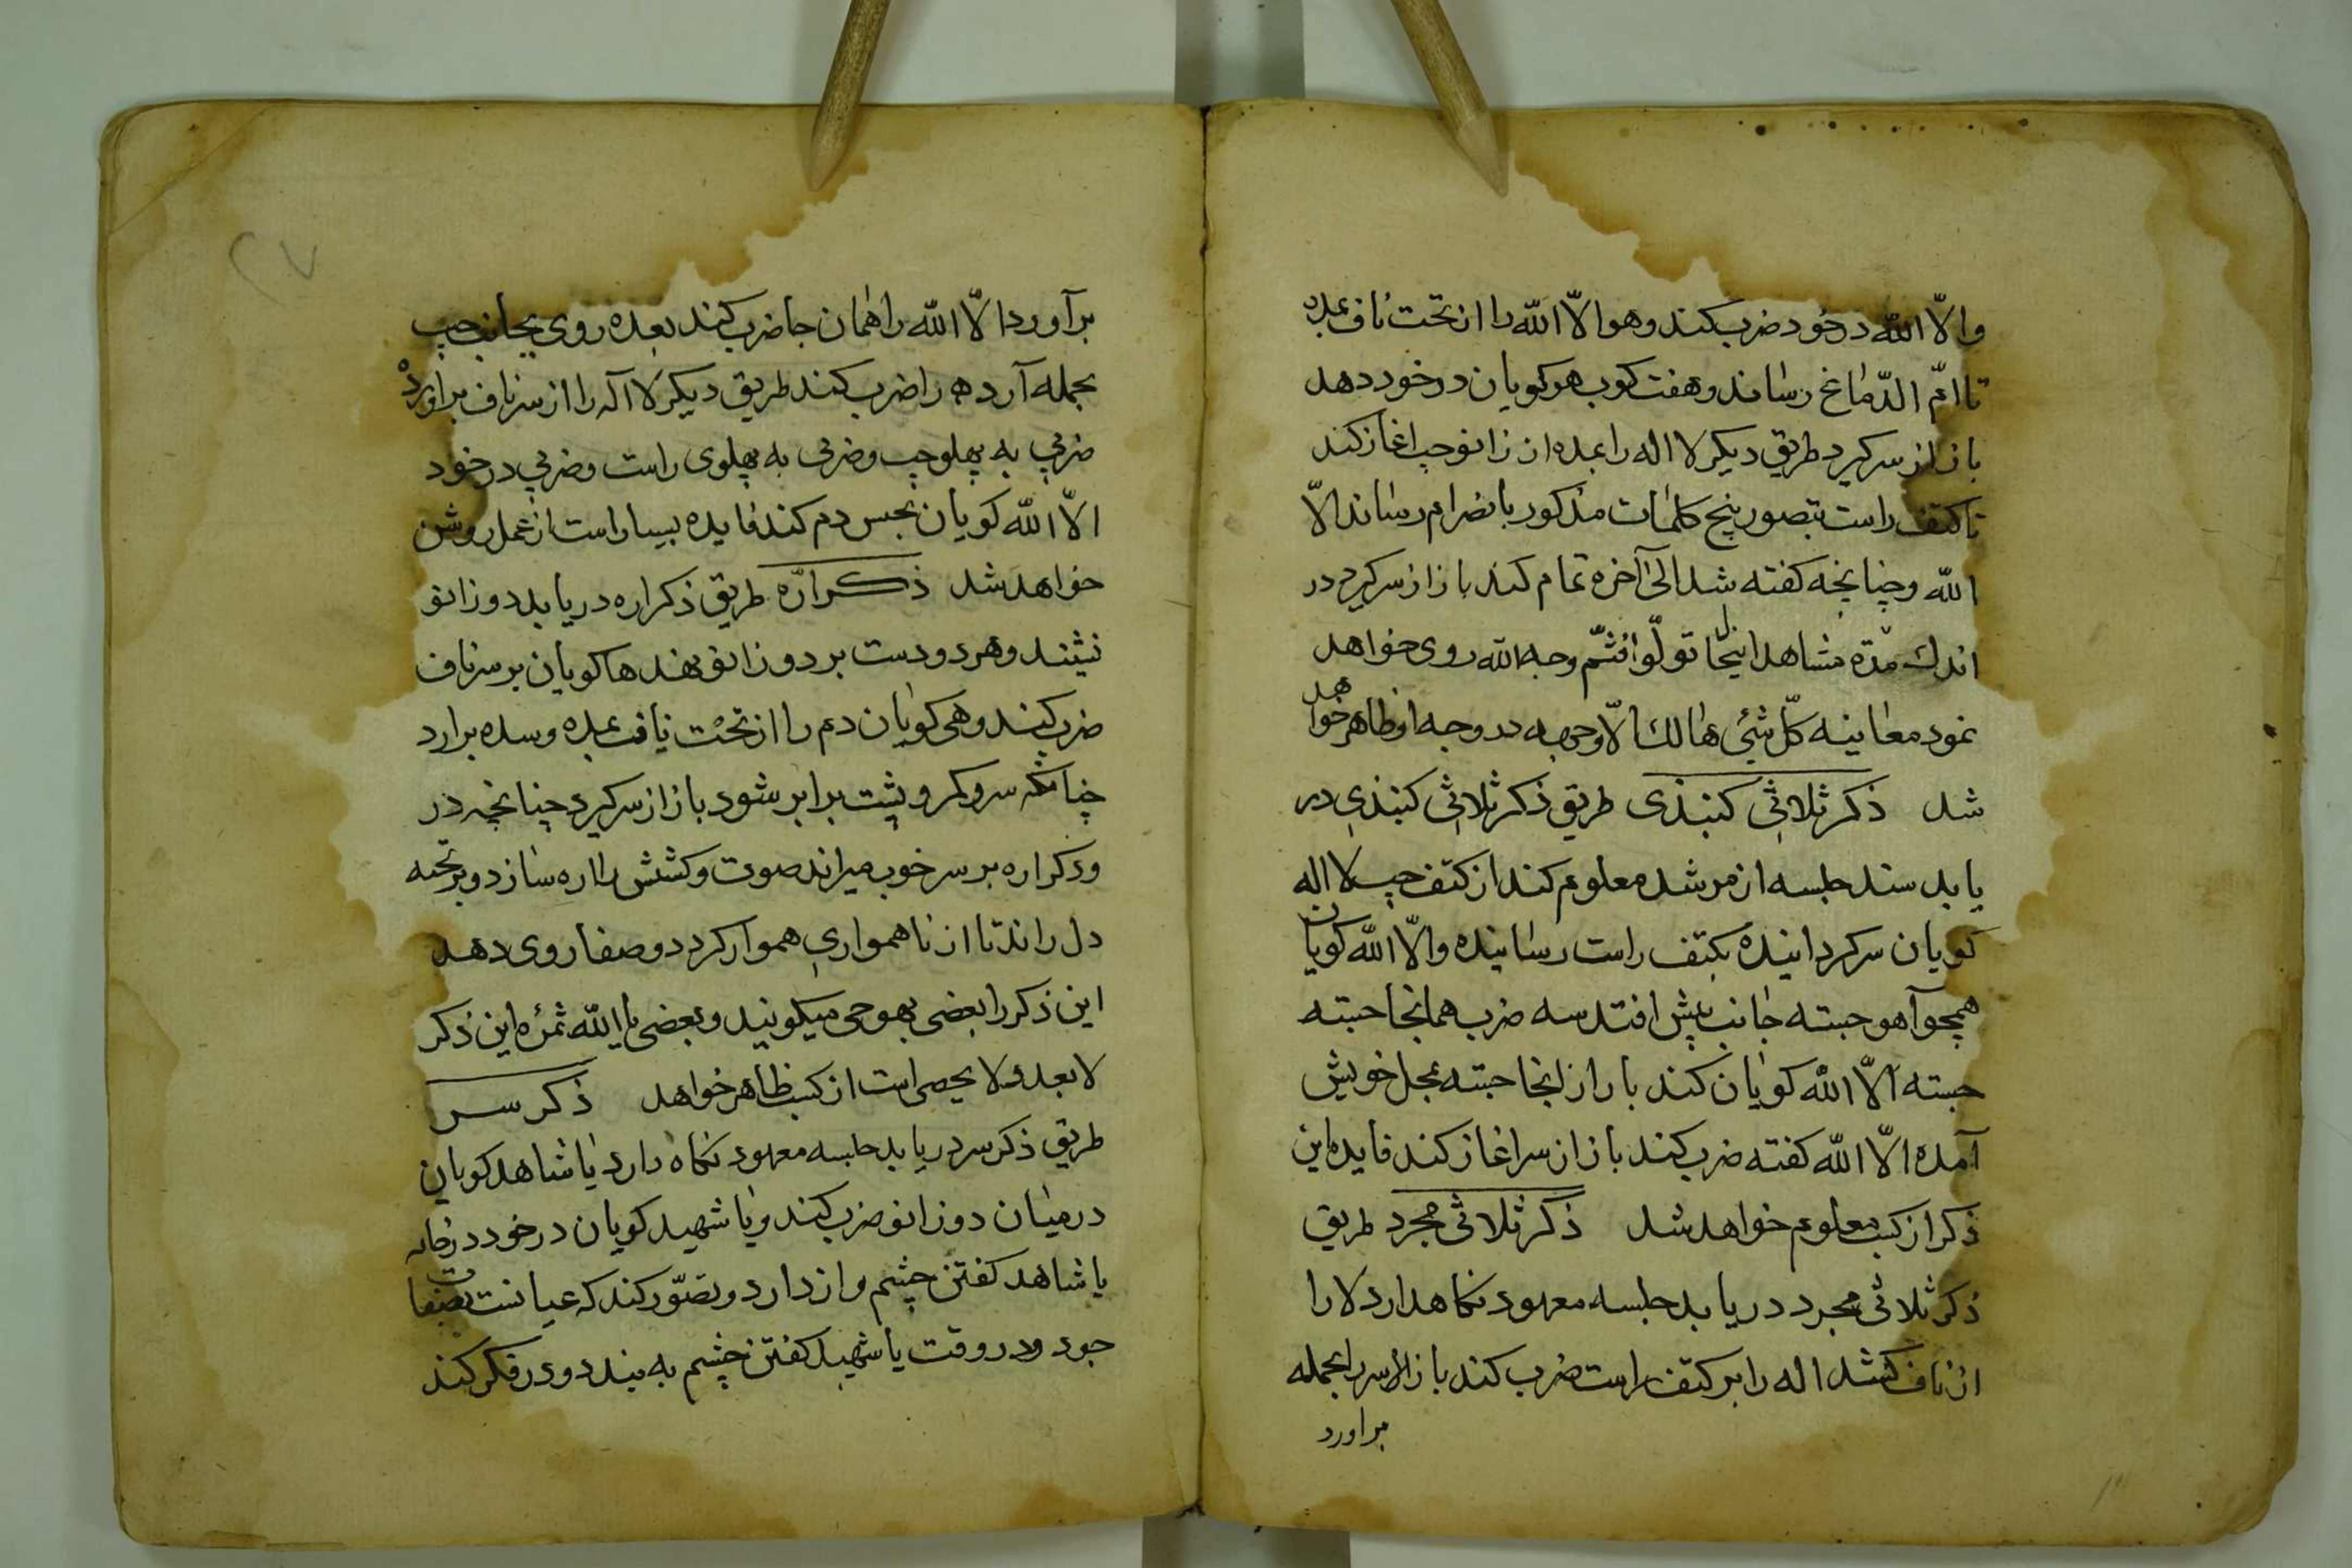 والّا الله در خود ضرب کند وهو الّا الله را از تحت ناف بمده
تا امّ الدّماغ رساند وهفت کوب هو کویان در خود دهد
باز از سر کیرد طریق دیکر لا اله را بمده از زانو چپ اغاز کند
تا کتف راست بتصور پنج کلمات مذکور بانصرام رساند الّا
الله وچنانچه کفته شد الی آخره تمام کند باز از سر کیرد در
اندك مدّة مشاهد اینما تولّوا فثمّ وجه الله روی خواهد
نمود معاینه کلّ شئی هالك الّا وجهه در وجه او ظاهر خواهد
شد ذکر ثلاثی کنبذی طریق ذکر ثلاثی کنبذی در
یابد سند جلسه از مرشد معلوم کند از کتف چپ لا اله
کویان سر کردانیده بکتف راست رسانیده والّا الله کویان
همچو آهو جسته جانب پیش افتد سه ضرب همانجا جسته
جسته الّا الله کویان کند باز از انجا جسته بمحل خویش
آمده الّا الله کفته ضرب کند باز از سر اغاز کند فایده این
ذکر از کسب معلوم خواهد شد ذکر ثلاثی مجرد طریق
ذکر ثلاثی مجرد دریابد جلسه معهود نکاهدارد لا را
از ناف کشد اله را بر کتف راست ضرب کند باز سر بحمله
براورد
۲۷
برآورد الّا الله را همان جا ضرب کند بعده روی بجانب چپ
بحمله آرد ه را ضرب کند طریق دیکر لا آله را از سر ناف براورده
ضربی به پهلو چپ وضربی به پهلوی راست وضربی در خود
الّا الله کویان بحبس دم کند فایده بسیار است از عمل روشن
خواهد شد ذکر ارّه طریق ذکر اره دریابد دو زانو
نشیند وهر دو دست بر دو زانو نهد ها کویان بر سر ناف
ضرب کند وهی کویان دم را از تحت ناف بمده وسده برارد
چنانکه سر وکمر وپشت برابر شود باز از سر کیرد چنانچه در
ودکر اره بر سر خوب میراند صوت وکشش را اره سازد وبر تخته
دل راند تا از ناهمواری هموار کردد وصفا روی دهد
این ذکر را بعضی بهو حی میکویند وبعضی با الله ثمرٔه این ذکر
لا یعد ولا یحصی است از کسب ظاهر خواهد ذکر سر
طریق ذکر سر دریابد جلسه معهود نکاه دارد یا شاهد کویان
درمیان دو زانو ضرب کند ویا شهید کویان در خود در خانه
یا شاهد کفتن چشم واز دارد وتصوّر کند که عیانست
جود ودر وقت یا شهید کفتن چشم به بندد ودر فکر کند